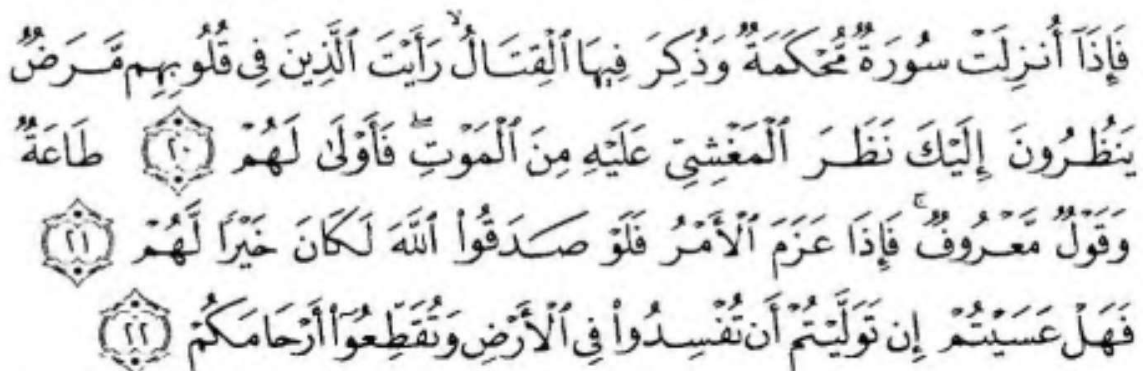 فَإِذَآ أُنزِلَتْ سُورَةٌ مُّحْكَمَةٌ وَذُكِرَ فِيهَا ٱلْقِتَالُ ۙ رَأَيْتَ ٱلَّذِينَ فِى قُلُوبِهِم مَّرَضٌ
يَنظُرُونَ إِلَيْكَ نَظَرَ ٱلْمَغْشِىِّ عَلَيْهِ مِنَ ٱلْمَوْتِ ۖ فَأَوْلَىٰ لَهُمْ ٢٠ طَاعَةٌ
وَقَوْلٌ مَّعْرُوفٌ ۚ فَإِذَا عَزَمَ ٱلْأَمْرُ فَلَوْ صَدَقُوا۟ ٱللَّهَ لَكَانَ خَيْرًا لَّهُمْ ٢١
فَهَلْ عَسَيْتُمْ إِن تَوَلَّيْتُمْ أَن تُفْسِدُوا۟ فِى ٱلْأَرْضِ وَتُقَطِّعُوٓا۟ أَرْحَامَكُمْ ٢٢